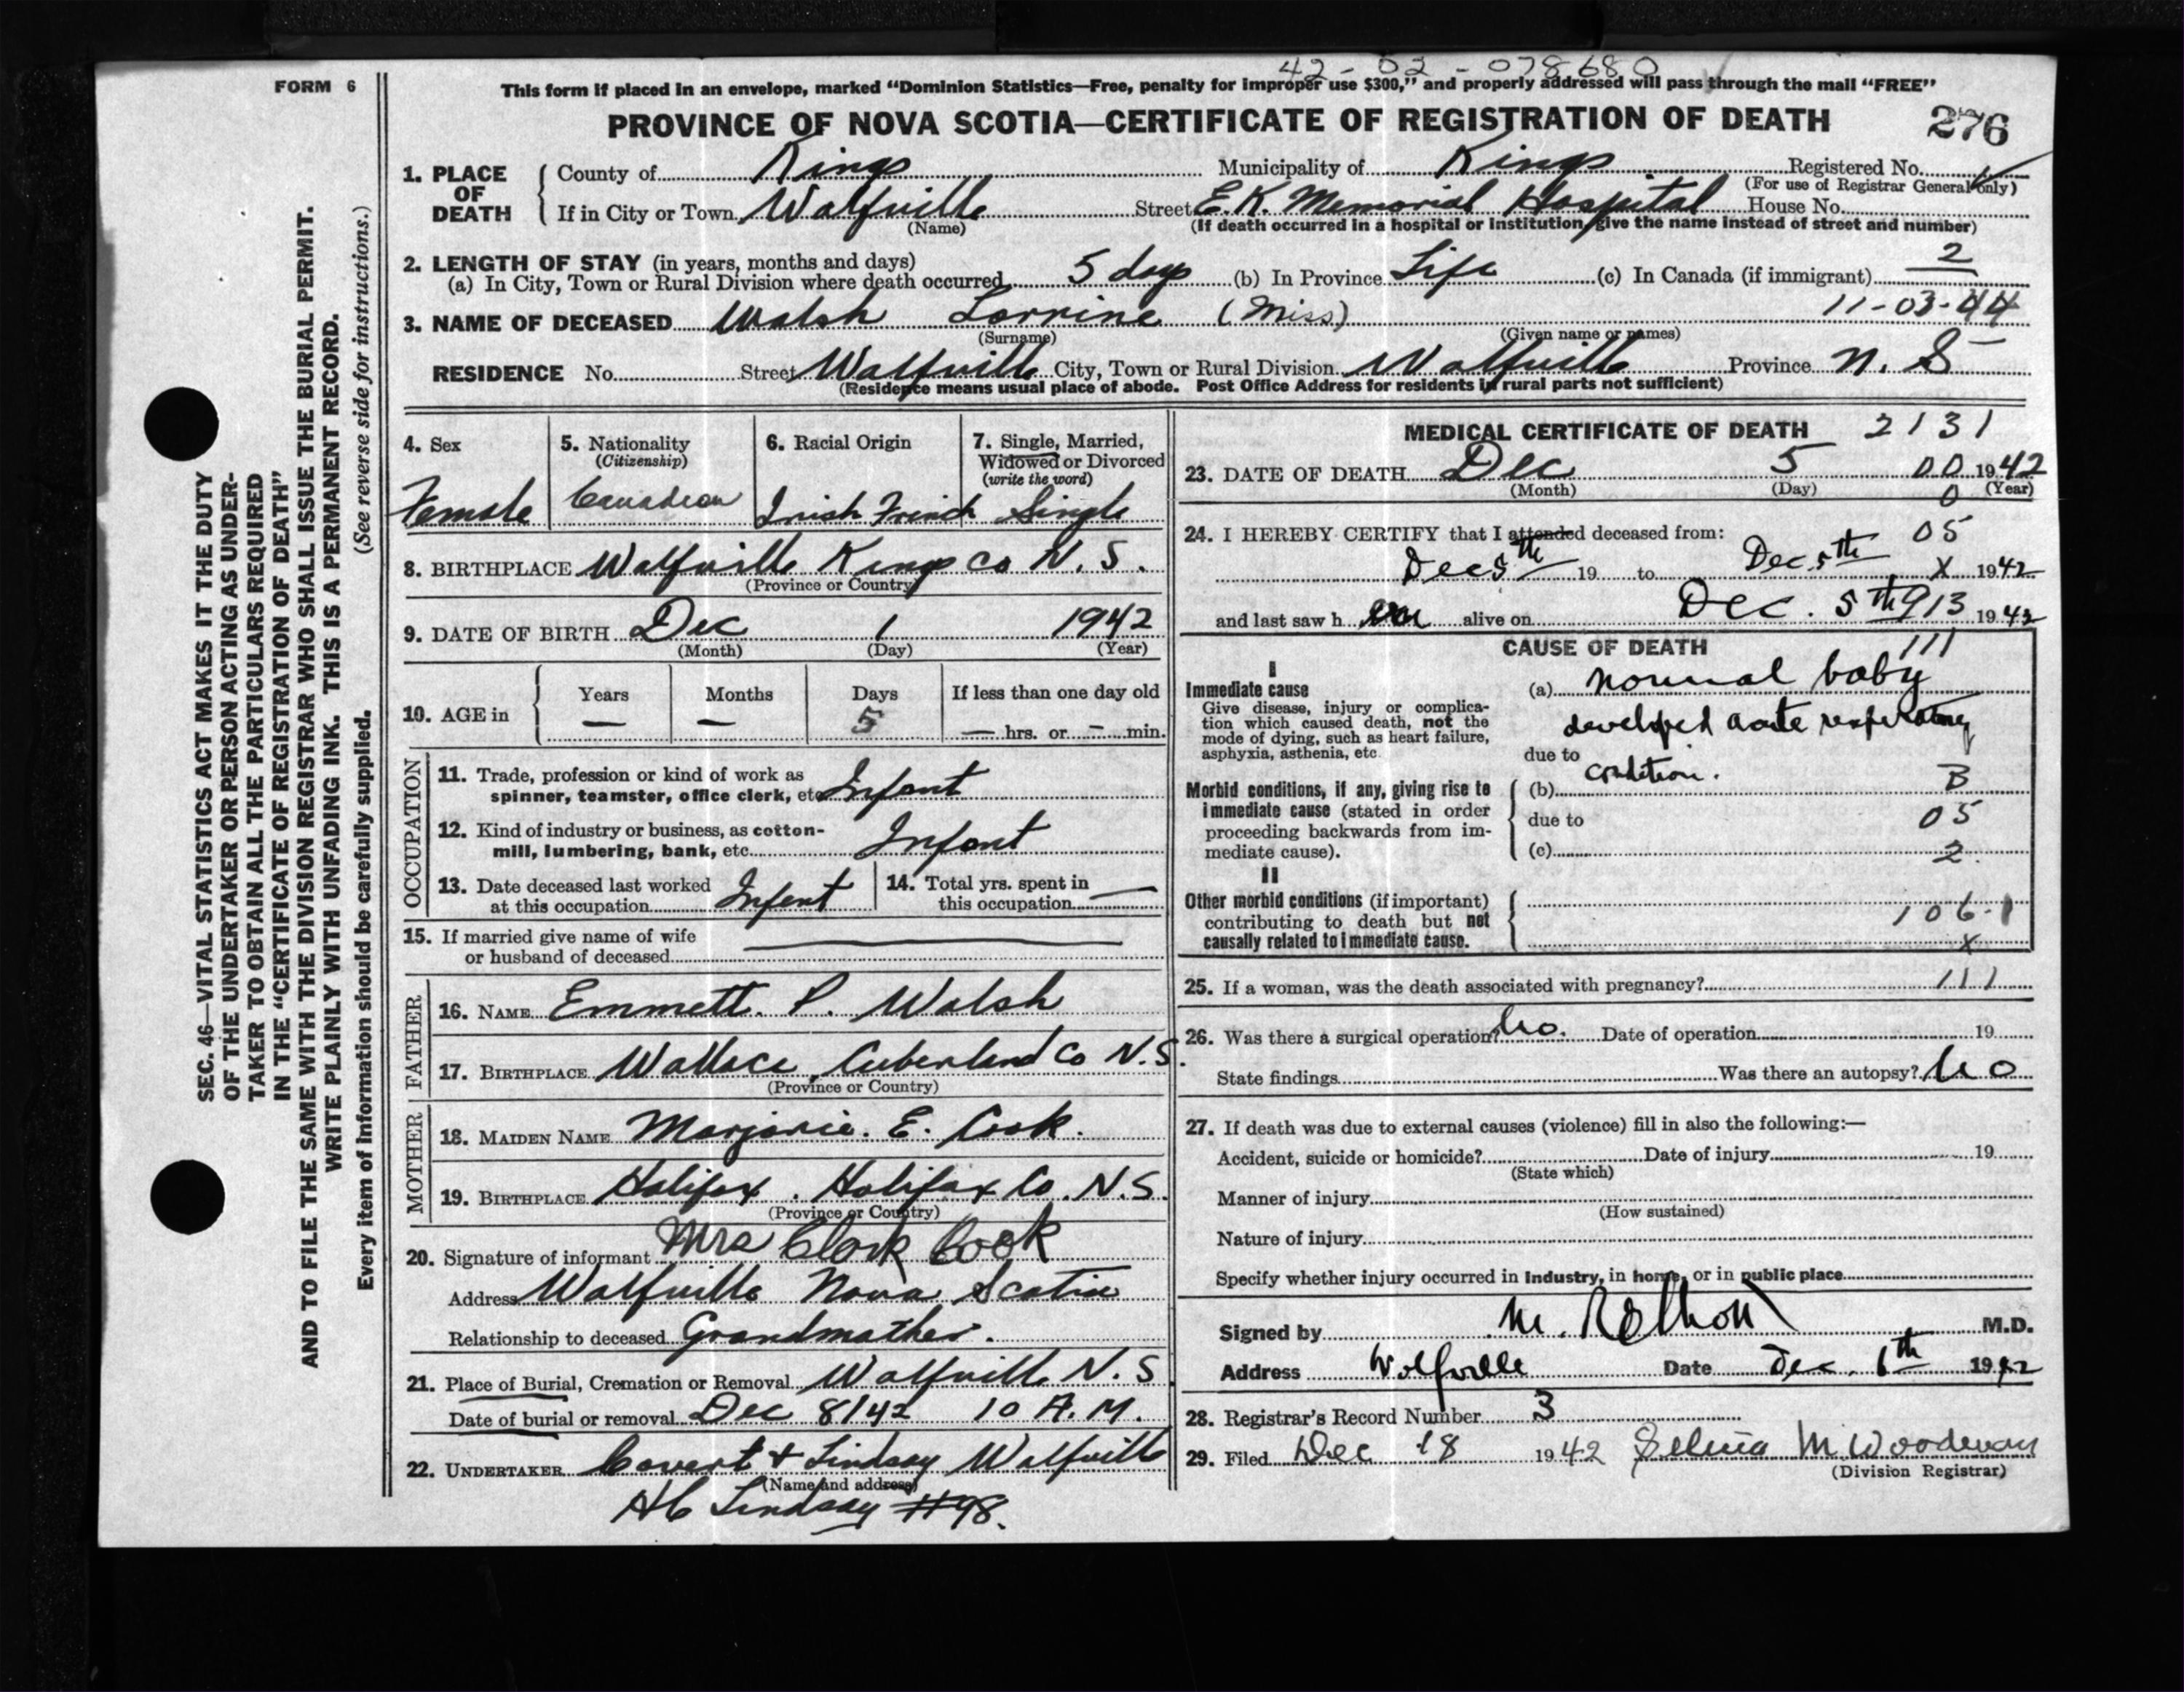 42-02-078680
FORM 6
This form if placed in an envelope, marked "Dominion Statistics—Free, penalty for improper use $300," and properly addressed will pass through the mail "FREE"
PROVINCE OF NOVA SCOTIA—CERTIFICATE OF REGISTRATION OF DEATH 276
1. PLACE OF DEATH
County of Kings Municipality of Kings Registered No.
(For use of Registrar General only)
If in City or Town Wolfville Street E.K. Memorial Hospital House No.
(Name) (If death occurred in a hospital or institution, give the name instead of street and number)
2. LENGTH OF STAY (in years, months and days) 2
(a) In City, Town or Rural Division where death occurred 5 days (b) In Province Life (c) In Canada (if immigrant)
11-03-44
3. NAME OF DECEASED Walsh Lorrine (Miss)
(Surname) (Given name or names)
RESIDENCE No. Street Wolfville City, Town or Rural Division Wolfville Province N. S
(Residence means usual place of abode. Post Office Address for residents in rural parts not sufficient)
4. Sex Female
5. Nationality (Citizenship) Canadian
6. Racial Origin Irish French
7. Single, Married, Widowed or Divorced (write the word) Single
8. BIRTHPLACE Wolfville Kings Co N. S.
(Province or Country)
9. DATE OF BIRTH Dec 1 1942
(Month) (Day) (Year)
10. AGE in Years — Months — Days 5 If less than one day old — hrs. or — min.
OCCUPATION
11. Trade, profession or kind of work as
spinner, teamster, office clerk, etc Infant
12. Kind of industry or business, as cotton-
mill, lumbering, bank, etc. Infant
13. Date deceased last worked
at this occupation Infent
14. Total yrs. spent in
this occupation —
15. If married give name of wife
or husband of deceased
FATHER
16. NAME Emmett. P. Walsh
17. BIRTHPLACE Wallace, Cuberland Co N.S.
(Province or Country)
MOTHER
18. MAIDEN NAME Marjorie. E. Cook.
19. BIRTHPLACE Halifax. Halifax Co. N.S.
(Province or Country)
20. Signature of informant Mrs Clark Cook
Address Wolfville Nova Scotia
Relationship to deceased Grandmother.
21. Place of Burial, Cremation or Removal Wolfville N. S
Date of burial or removal Dec 8/42 10 A.M.
22. UNDERTAKER Covert & Lindsay Wolfville
(Name and address)
Lindsay #98.
MEDICAL CERTIFICATE OF DEATH 2131
23. DATE OF DEATH Dec 5 00 1942
(Month) (Day) 0 (Year)
24. I HEREBY CERTIFY that I attended deceased from: 05
Dec 5th 19 to Dec. 5th X 1942
and last saw h er alive on Dec. 5th 913 1942
CAUSE OF DEATH 111
I
Immediate cause
Give disease, injury or complica-
tion which caused death, not the
mode of dying, such as heart failure,
asphyxia, asthenia, etc.
(a) normal baby
developed acute respiratory
due to
condition.
Morbid conditions, if any, giving rise to
immediate cause (stated in order
proceeding backwards from im-
mediate cause).
(b) B
due to 05
(c) 2.
II
Other morbid conditions (if important)
contributing to death but not
causally related to immediate cause.
106-1
X
25. If a woman, was the death associated with pregnancy? 111
26. Was there a surgical operation? No. Date of operation 19
State findings Was there an autopsy? No
27. If death was due to external causes (violence) fill in also the following:—
Accident, suicide or homicide? Date of injury 19
(State which)
Manner of injury
(How sustained)
Nature of injury
Specify whether injury occurred in industry, in home, or in public place
Signed by M.D.
Address Wolfville Date Dec. 6th 1942
28. Registrar's Record Number 3
29. Filed Dec 18 1942
(Division Registrar)
SEC. 46—VITAL STATISTICS ACT MAKES IT THE DUTY
OF THE UNDERTAKER OR PERSON ACTING AS UNDER-
TAKER TO OBTAIN ALL THE PARTICULARS REQUIRED
IN THE "CERTIFICATE OF REGISTRATION OF DEATH"
AND TO FILE THE SAME WITH THE DIVISION REGISTRAR WHO SHALL ISSUE THE BURIAL PERMIT.
WRITE PLAINLY WITH UNFADING INK. THIS IS A PERMANENT RECORD.
Every item of information should be carefully supplied. (See reverse side for instructions.)